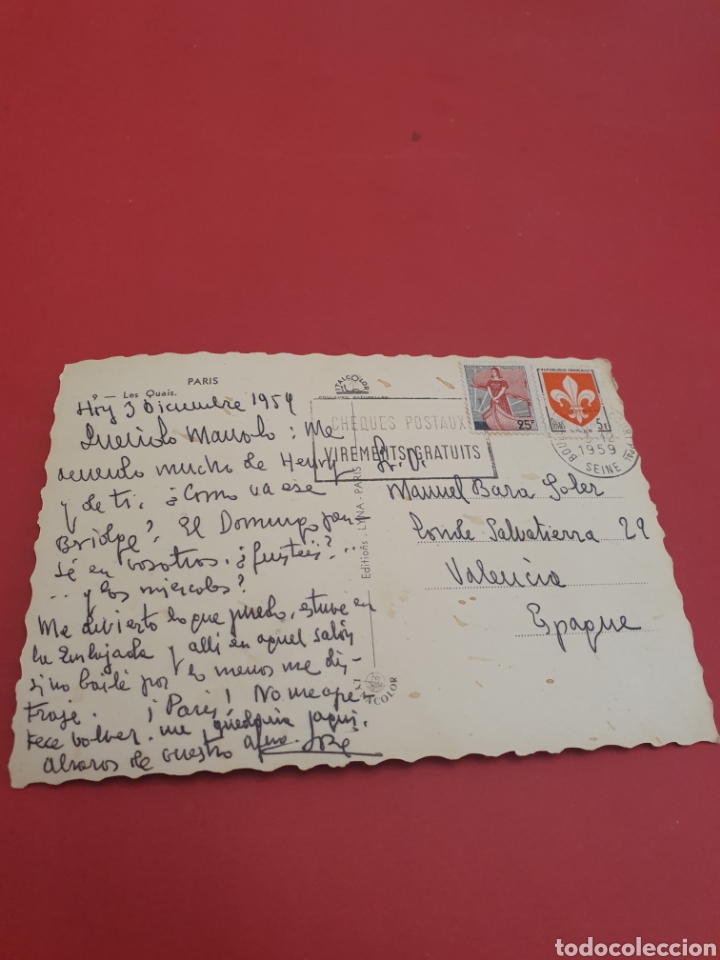 PARIS
9 — Les Quais.
Hoy 3 Diciembre 1959
Querido Manolo: Me
acuerdo mucho de Henry
y de ti. ¿Como va ese
Bridge? El Domingo pen-
sé en vosotros. ¿fuisteis?...
... y los miercoles?
Me divierto lo que puedo, estuve en
la Embajada y alli en aquel salón
si no bailé por lo menos me dis-
traje. ¡Paris! No me ape-
tece volver. me quedaria aqui.
abrazos de vuestro José
ITALCOLOR
CHEQUES POSTAUX
VIREMENTS GRATUITS
25F
REPUBLIQUE FRANÇAISE
5F
3-12
1959
SEINE
Editions - LYNA - PARIS
Sr. D.
Manuel Bara Soler
Conde Salvatierra 29
Valencia
Espagne
todocoleccion